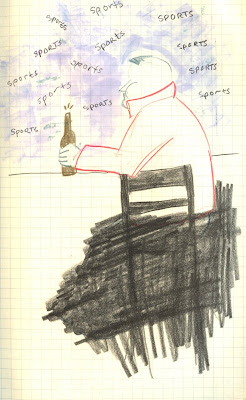 sports
SPORTS
sports
sports
SPORTS
SPORTS
sports
SPORTS
sports
sports
sports
SPORTS
SPORTS